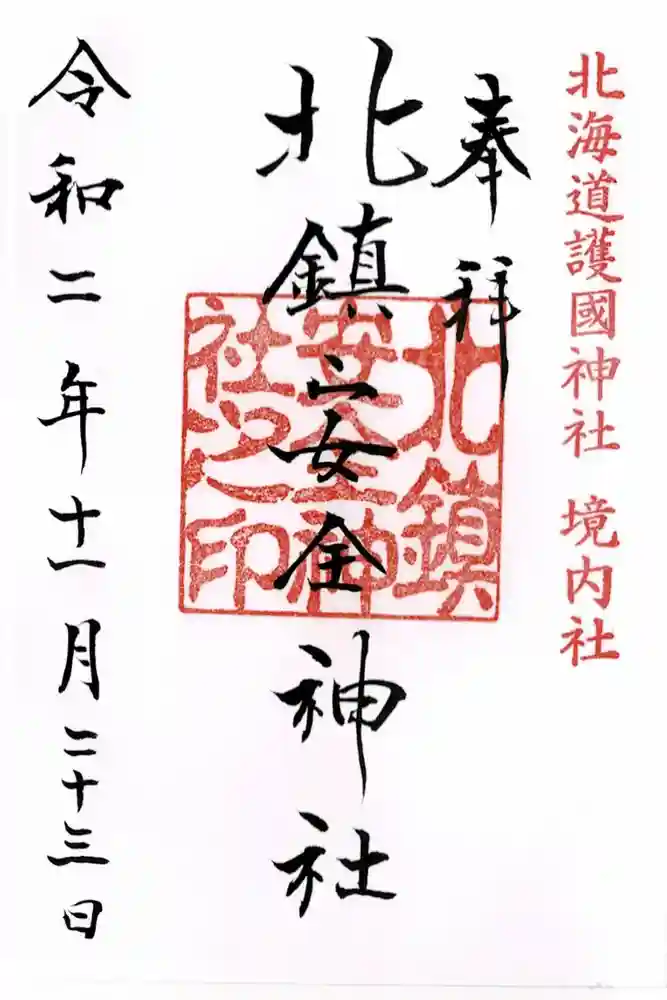 北海道護國神社 境内社
奉拝
北鎮安全神社
北鎮
安全神
社之印
令和二年十一月二十三日